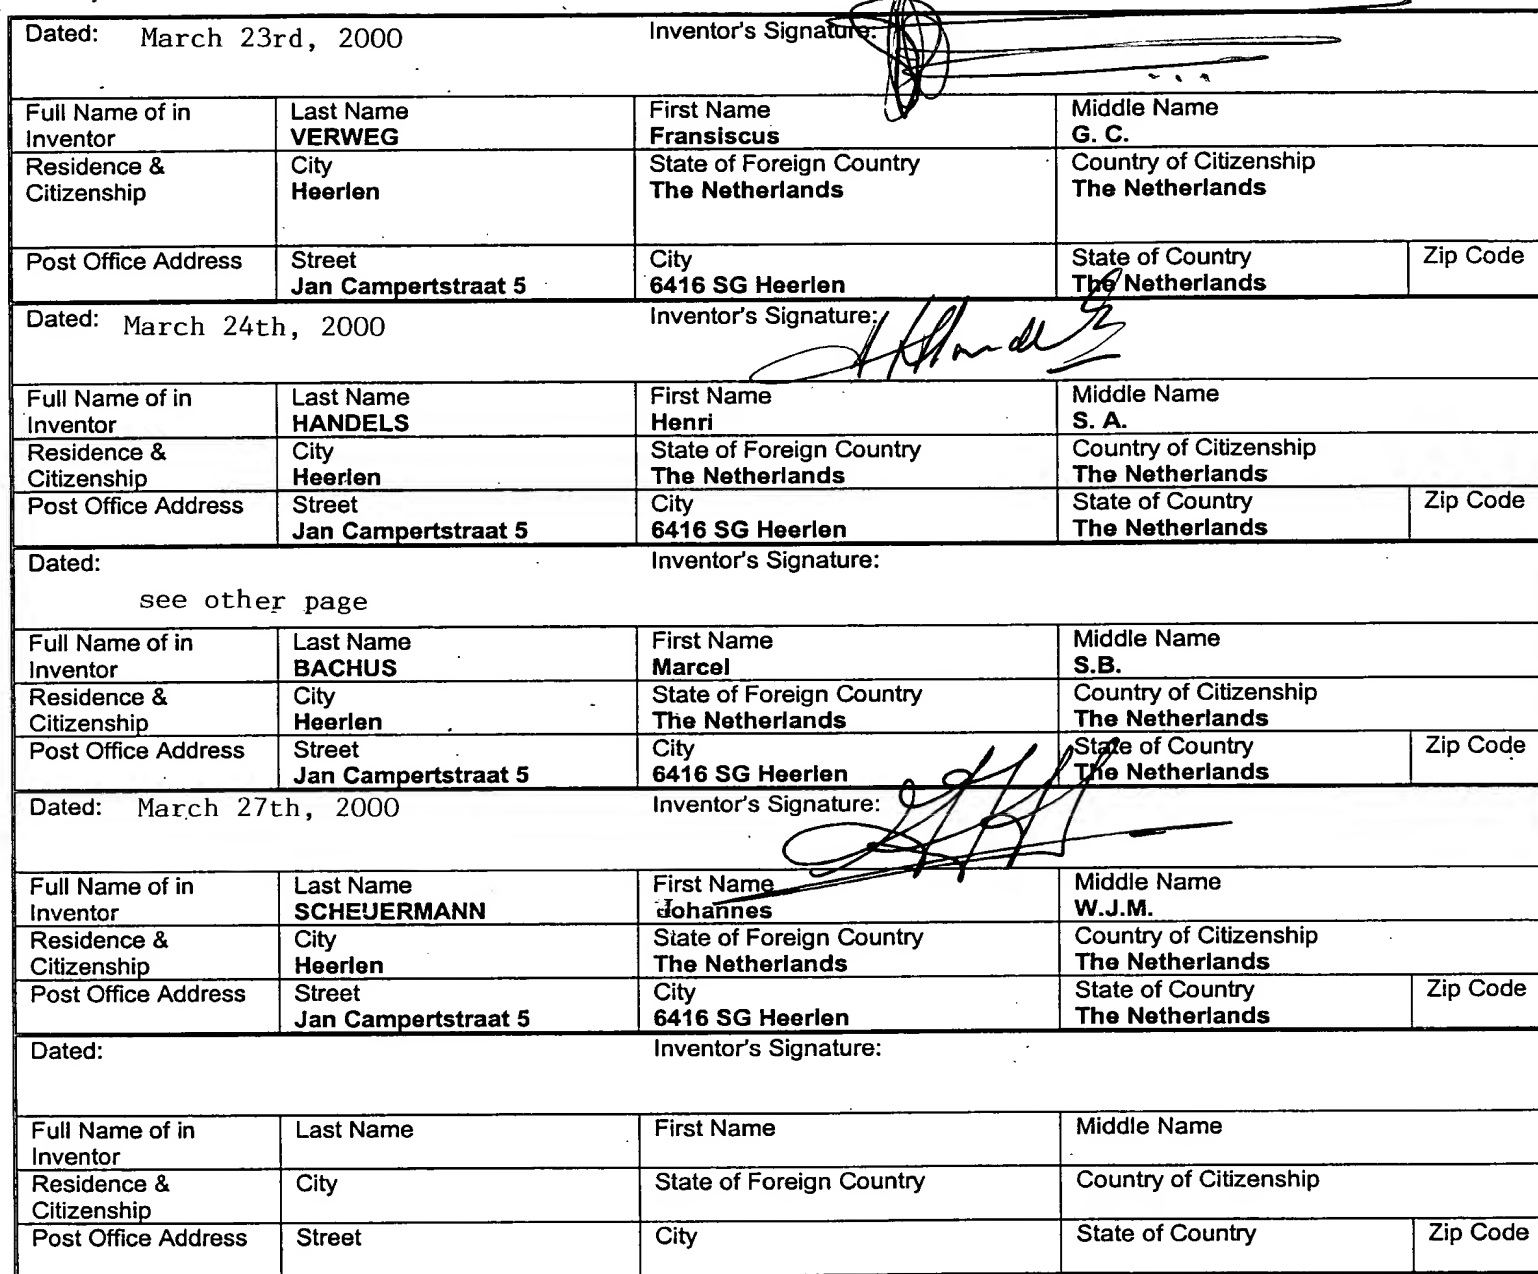 Dated: March 23rd, 2000 Inventor's Signature:
Full Name of in Inventor Last Name VERWEG First Name Fransiscus Middle Name G. C.
Residence & Citizenship City Heerlen State of Foreign Country The Netherlands Country of Citizenship The Netherlands
Post Office Address Street Jan Campertstraat 5 City 6416 SG Heerlen State of Country The Netherlands Zip Code
Dated: March 24th, 2000 Inventor's Signature:
Full Name of in Inventor Last Name HANDELS First Name Henri Middle Name S. A.
Residence & Citizenship City Heerlen State of Foreign Country The Netherlands Country of Citizenship The Netherlands
Post Office Address Street Jan Campertstraat 5 City 6416 SG Heerlen State of Country The Netherlands Zip Code
Dated: Inventor's Signature:
see other page
Full Name of in Inventor Last Name BACHUS First Name Marcel Middle Name S.B.
Residence & Citizenship City Heerlen State of Foreign Country The Netherlands Country of Citizenship The Netherlands
Post Office Address Street Jan Campertstraat 5 City 6416 SG Heerlen State of Country The Netherlands Zip Code
Dated: March 27th, 2000 Inventor's Signature:
Full Name of in Inventor Last Name SCHEUERMANN First Name Johannes Middle Name W.J.M.
Residence & Citizenship City Heerlen State of Foreign Country The Netherlands Country of Citizenship The Netherlands
Post Office Address Street Jan Campertstraat 5 City 6416 SG Heerlen State of Country The Netherlands Zip Code
Dated: Inventor's Signature:
Full Name of in Inventor Last Name First Name Middle Name
Residence & Citizenship City State of Foreign Country Country of Citizenship
Post Office Address Street City State of Country Zip Code